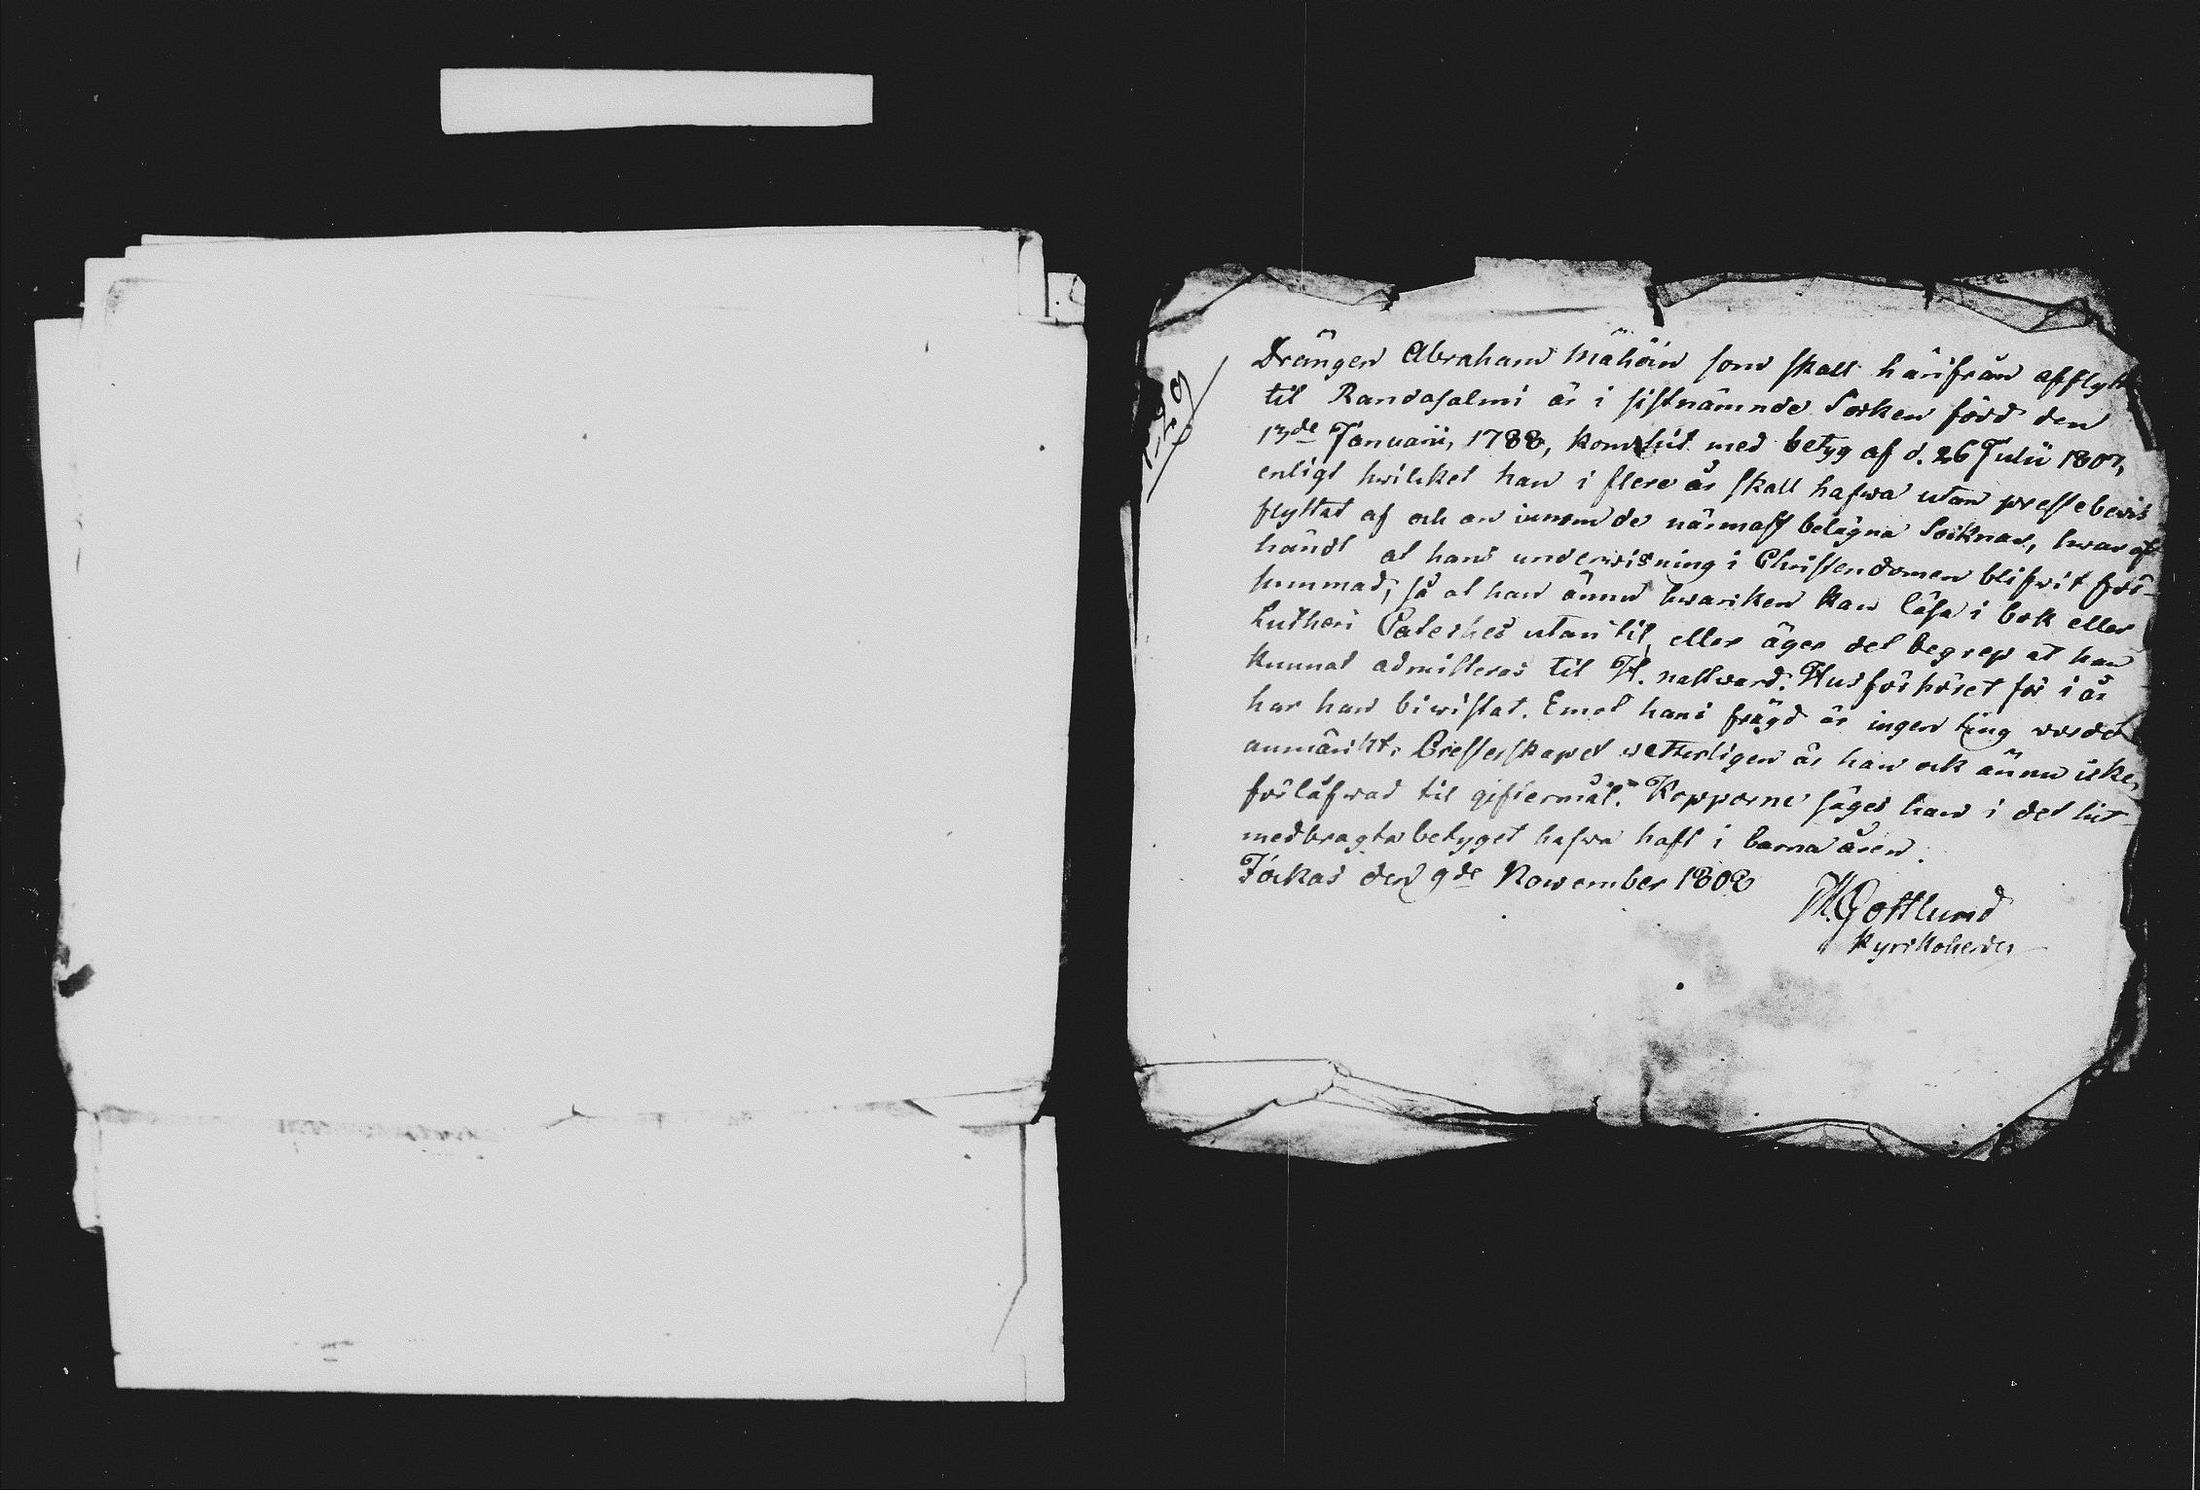 Drängen Abraham Mähöin som skall härifrån afflytt
til Randasalmi är i sistnämnde Socken född den
13de Januarii, 1788, kom hit med betyg af d. 26 Julii 1807,
enligt hvilcket han i flere år skall hafwa utan prestebevis
flyttat af och an inom de närmast belägna Socknar, hwar af
händt at hans underwisning i Christendomen blifwit för-
summad, så at han ännu hwarken kan läsa i bok eller
Lutheri Cateches utan til, eller äger det begrep at han
kunnat admitteras til H. nattward. Husförhöret för i år
har han biwistat. Emot hans frägd är ingen ting wordet
anmärkt. Presterskapet wetterligen är han ock ännu icke
förläfwad til giftermål. Kopporne säges han i det hit
medbragta betyget hafwa haft i barna åren.
Jockas den 9de November 1808
M. Gottlund
Kyrkoherde